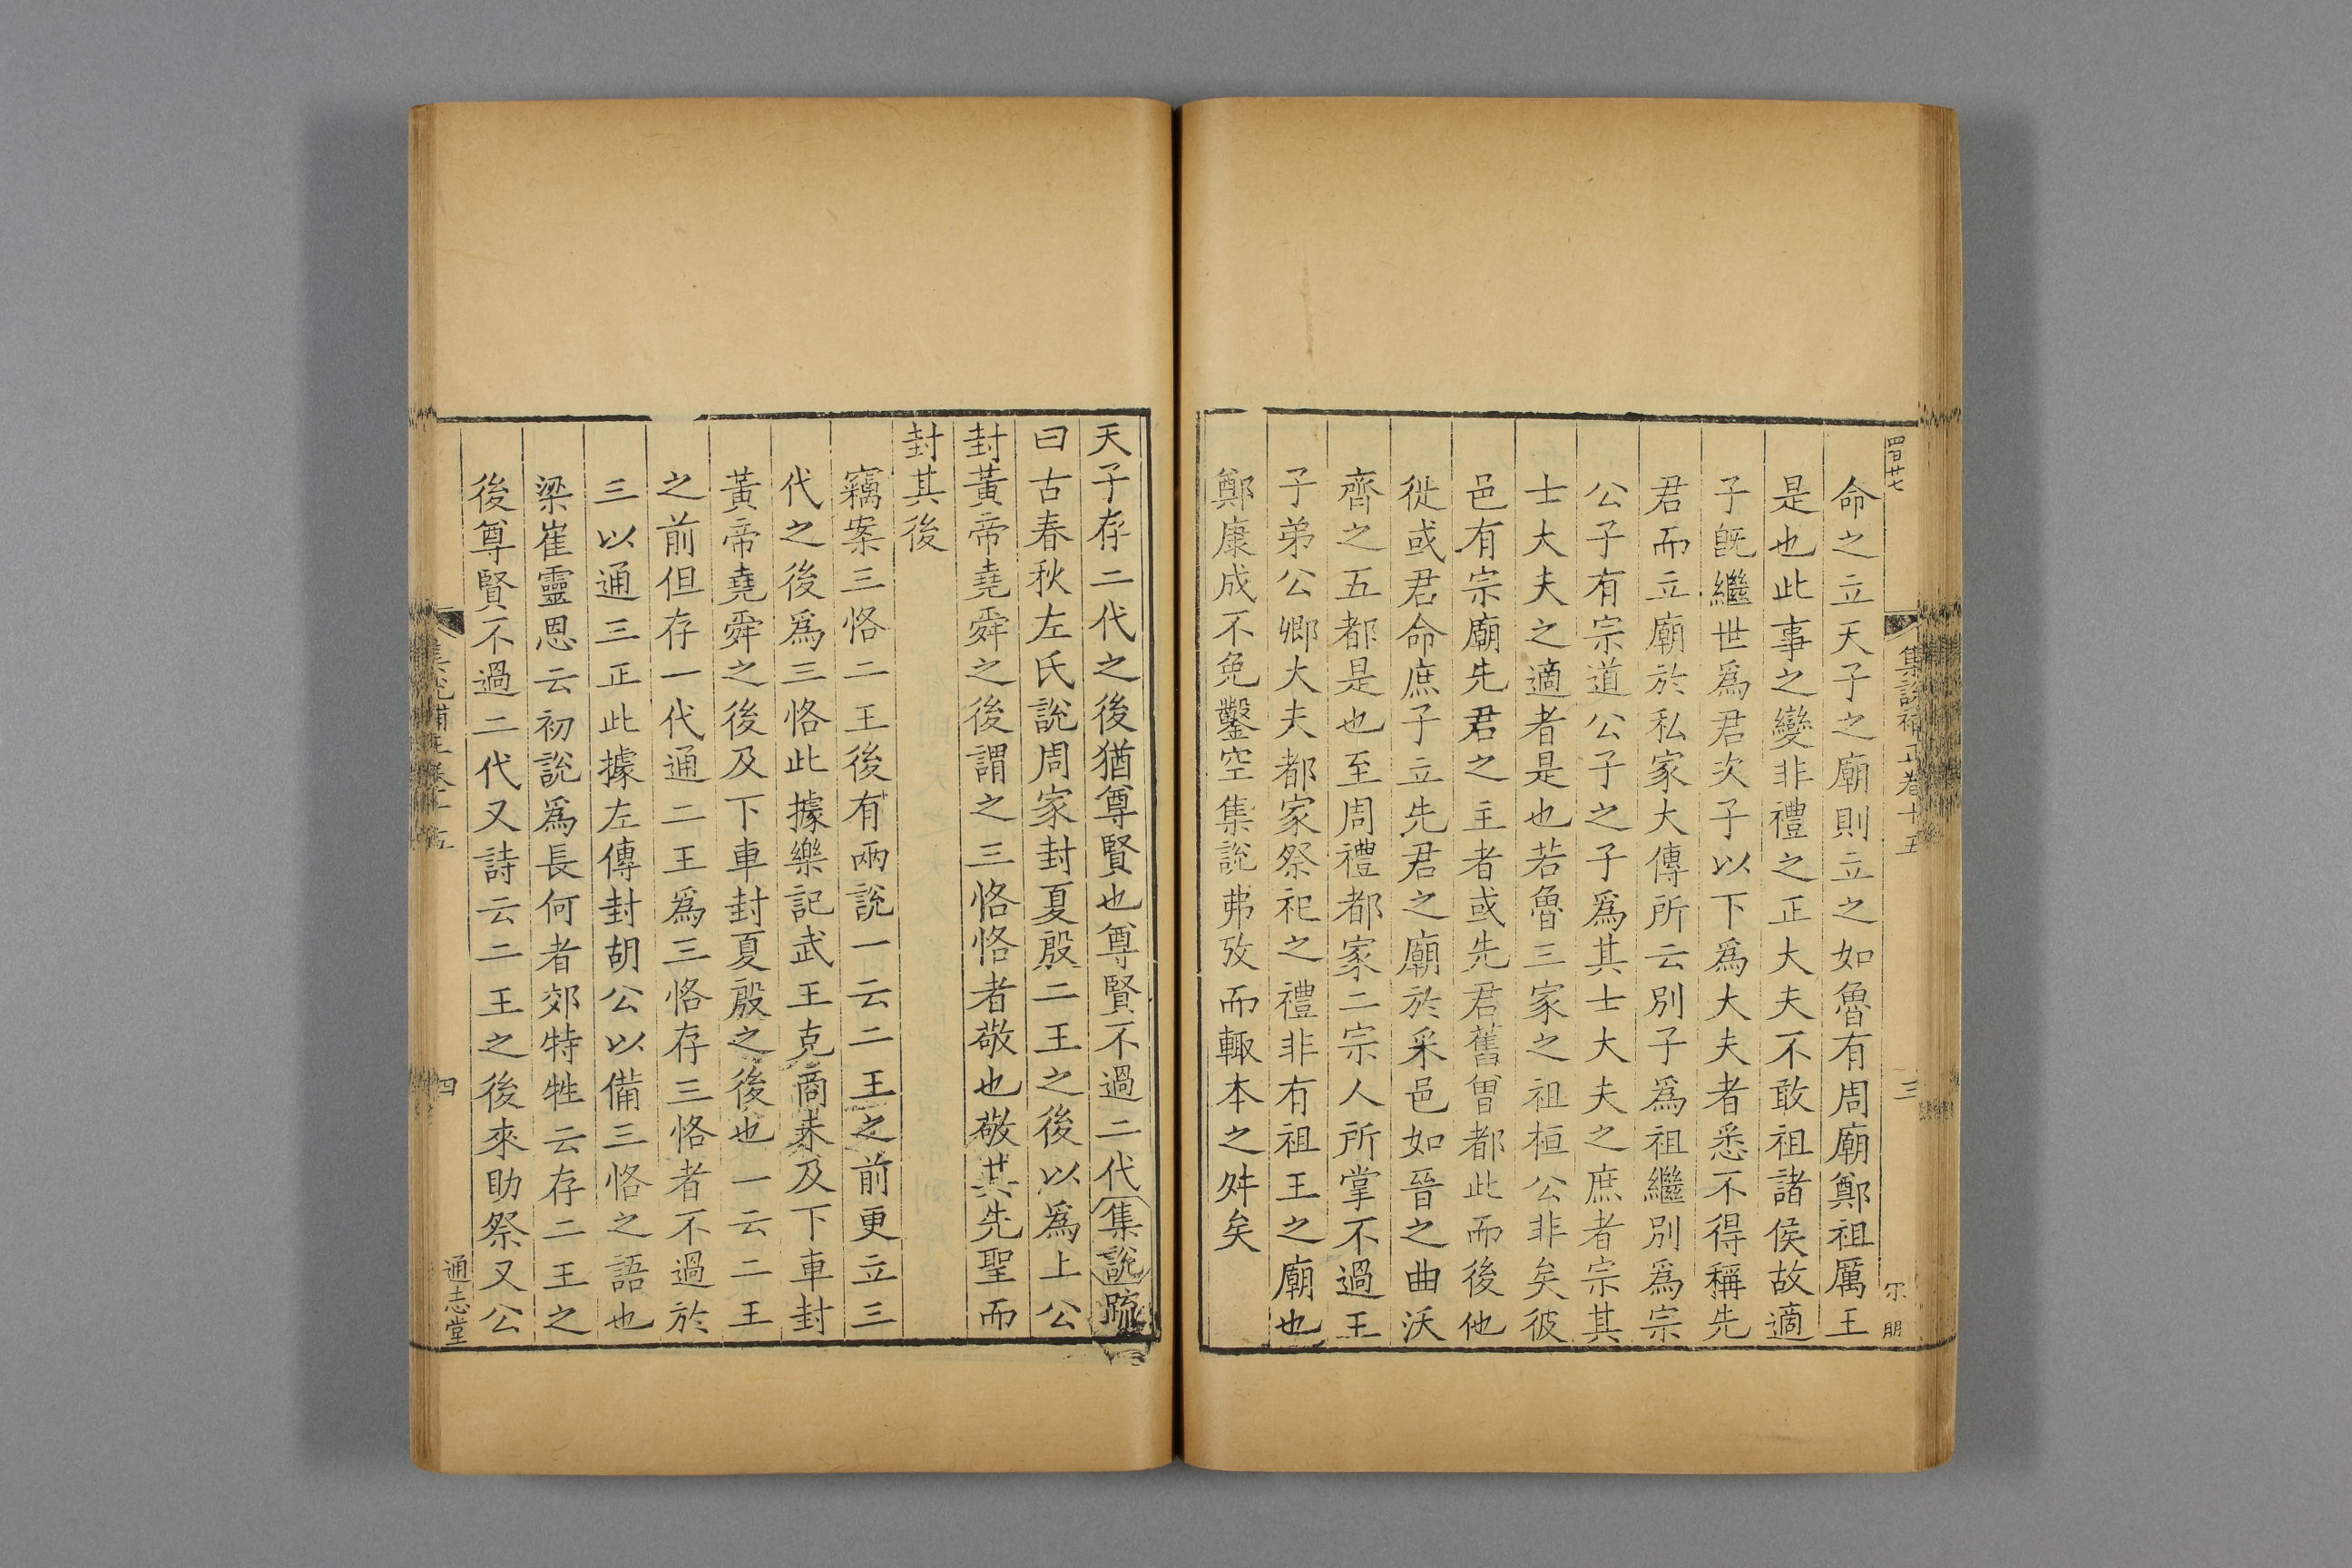 命之立天子之廟則立之如魯有周廟鄭祖厲王
是也此事之變非禮之正大夫不敢祖諸侯故適
子旣繼世爲君次子以下爲大夫者悉不得稱先
君而立廟於私家大傳所云別子爲祖繼別爲宗
公子有宗道公子之子爲其士大夫之庶者宗其
士大夫之適者是也若魯三家之祖桓公非矣彼
邑有宗廟先君之主者或先君舊曾都此而後他
徙或君命庶子立先君之廟於采邑如晉之曲沃
齊之五都是也至周禮都家二宗人所掌不過王
子弟公卿大夫都家祭祀之禮非有祖王之廟也
鄭康成不免鑿空集說弗攷而輙本之舛矣
集說補正卷十五
三
天子存二代之後猶尊賢也尊賢不過二代集說疏
曰古春秋左氏說周家封夏殷二王之後以爲上公
封黃帝堯舜之後謂之三恪恪者敬也敬其先聖而
封其後
竊案三恪二王後有兩說一云二王之前更立三
代之後爲三恪此據樂記武王克商未及下車封
黃帝堯舜之後及下車封夏殷之後也一云二王
之前但存一代通二王爲三恪存三恪者不過於
三以通三正此據左傳封胡公以備三恪之語也
梁崔靈恩云初說爲長何者郊特牲云存二王之
後尊賢不過二代又詩云二王之後來助祭又公
集說補正卷十五
四
通志堂